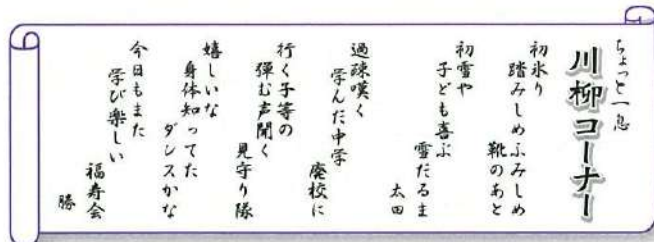 ちょっと一息
川柳コーナー
初氷り
踏みしめふみしめ
靴のあと
初雪や
子ども喜ぶ
雪だるま
太田
過疎嘆く
学んだ中学
廃校に
行く子等の
弾む声聞く
見守り隊
嬉しいな
身体知ってた
ダンスかな
今日もまた
学び楽しい
福寿会
勝